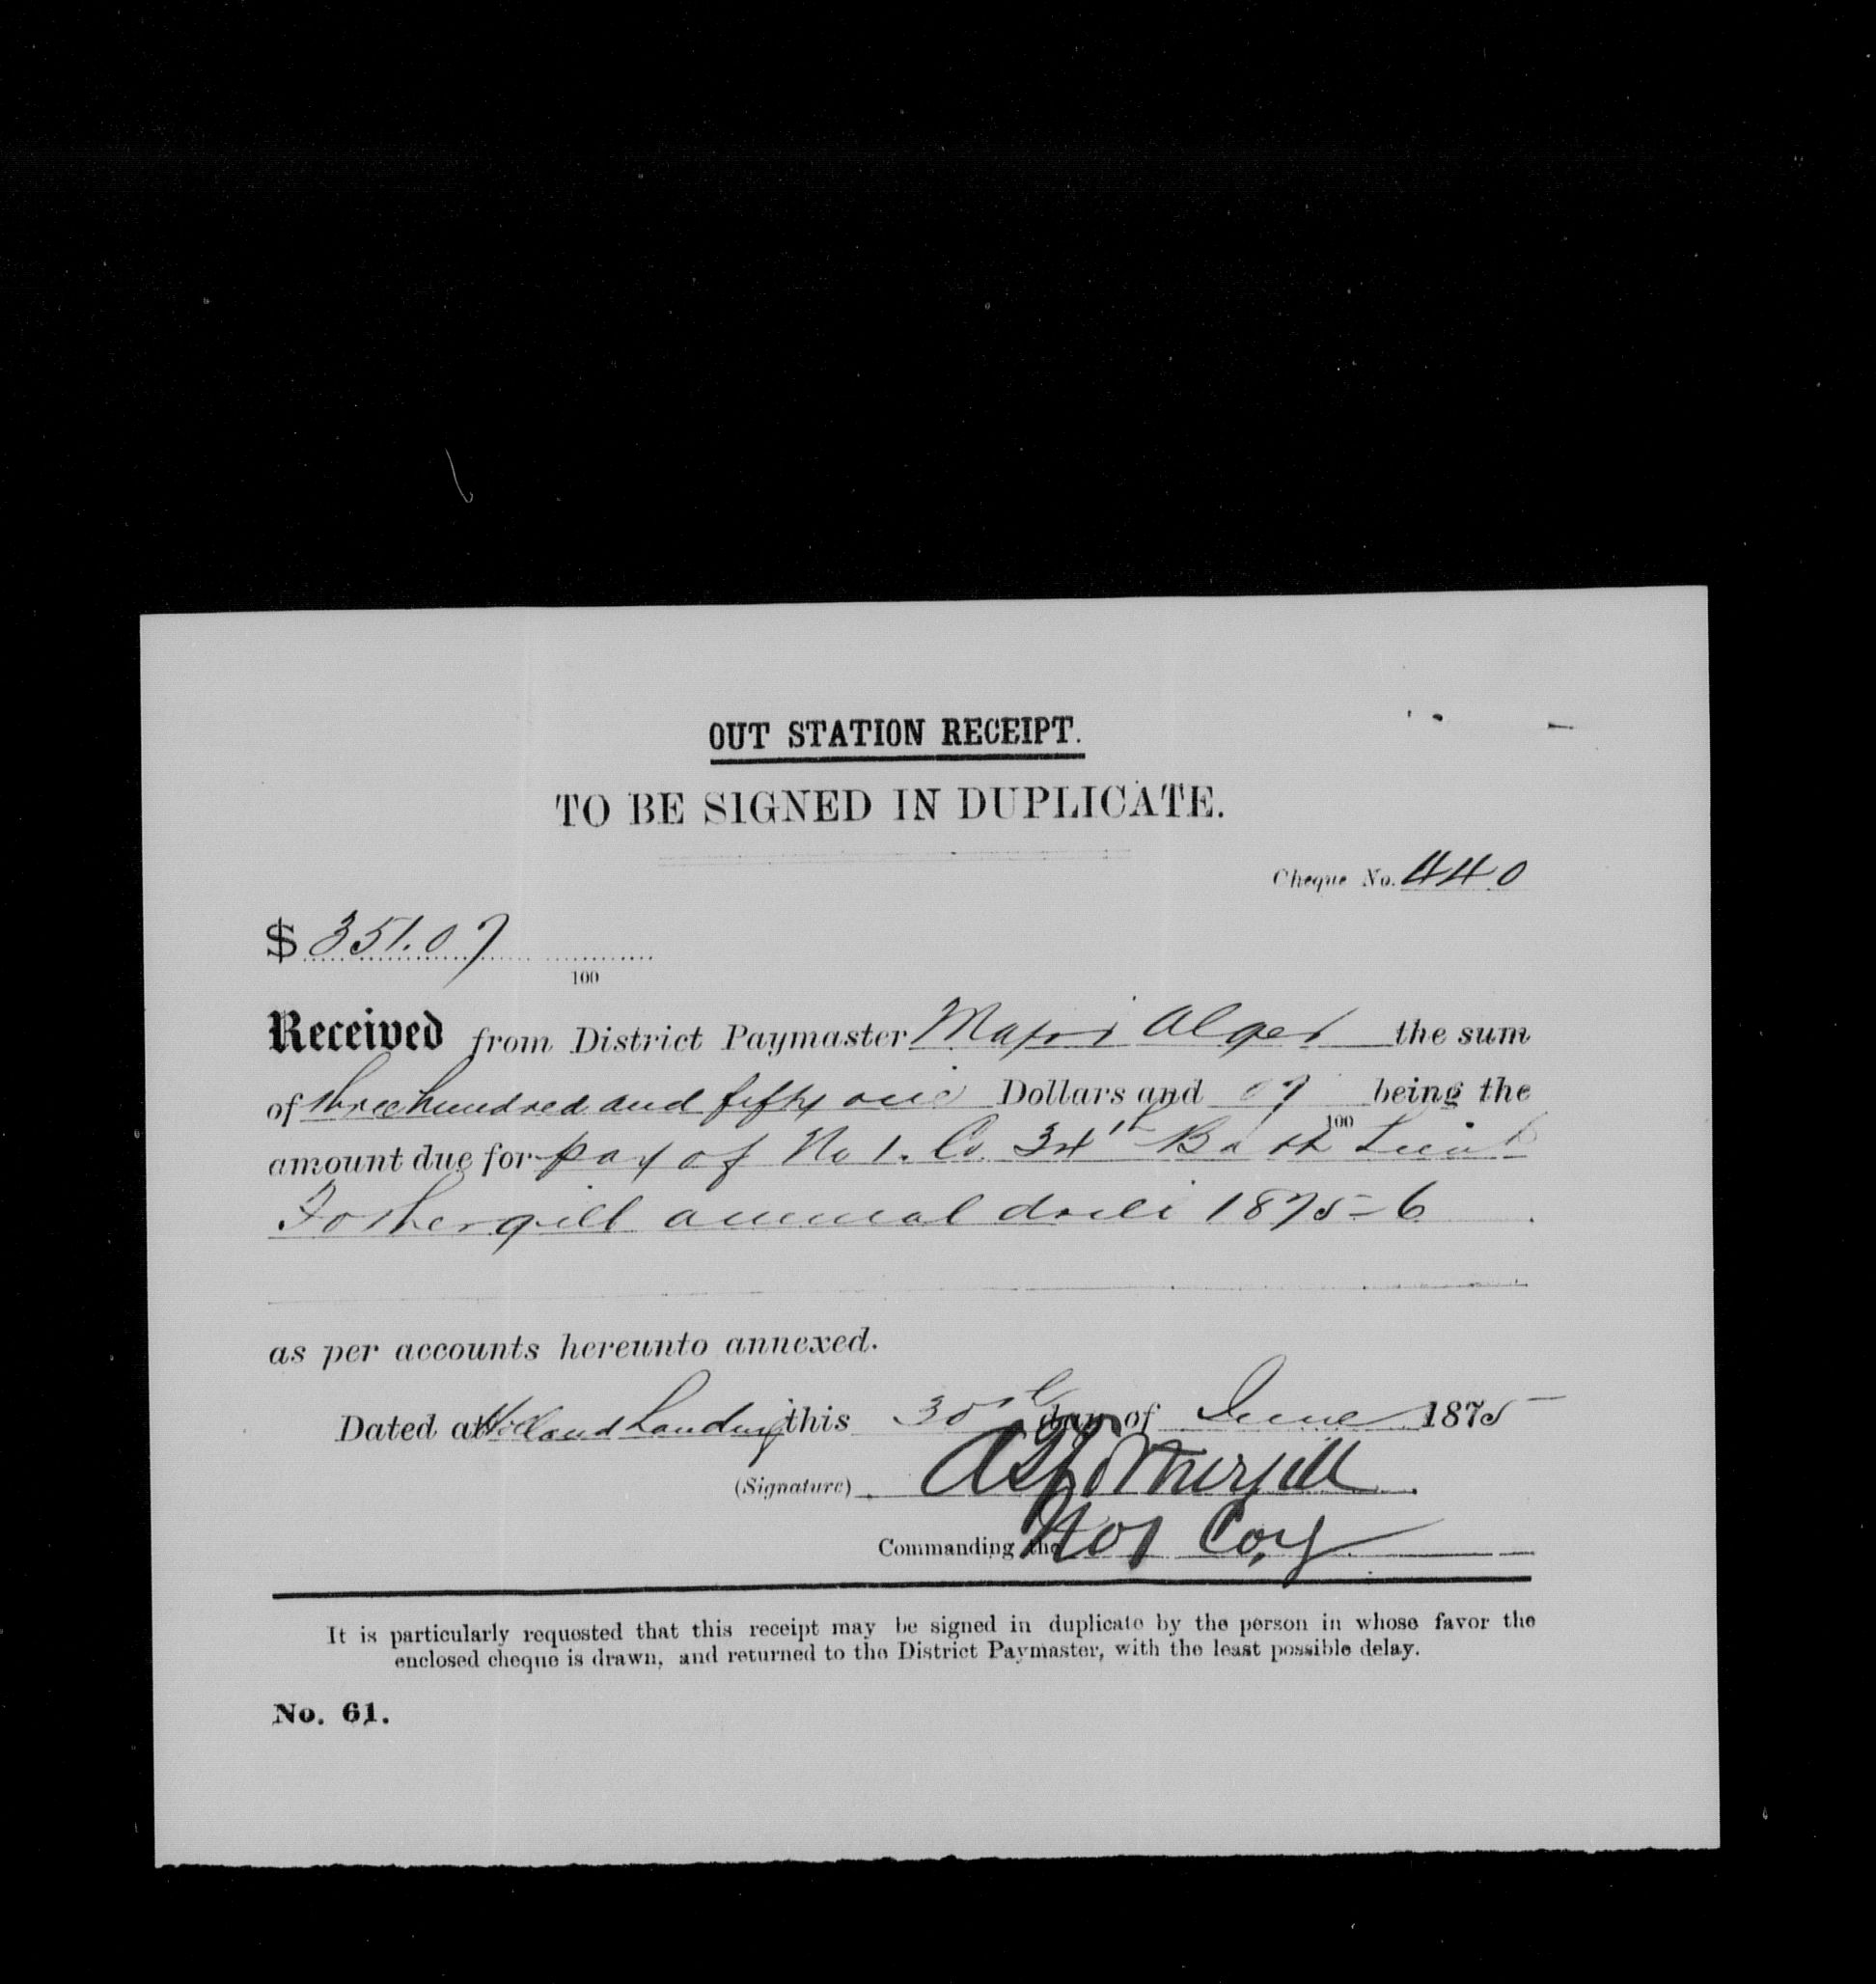 OUT STATION RECEIPT.
TO BE SIGNED IN DUPLICATE.
Cheque No. 440
$ 351.07
100
Received from District Paymaster Major Alger the sum
of three hundred and fifty one Dollars and 07 being the
100
amount due for pay of No 1. Co. 34th Batt Lieut
Fothergill annual drill 1875-6
as per accounts hereunto annexed.
Dated at Holland Landing this 30th day of June 1875
(Signature) Fothergill
Commanding the No 1 Coy
It is particularly requested that this receipt may be signed in duplicate by the person in whose favor the
enclosed cheque is drawn, and returned to the District Paymaster, with the least possible delay.
No. 61.